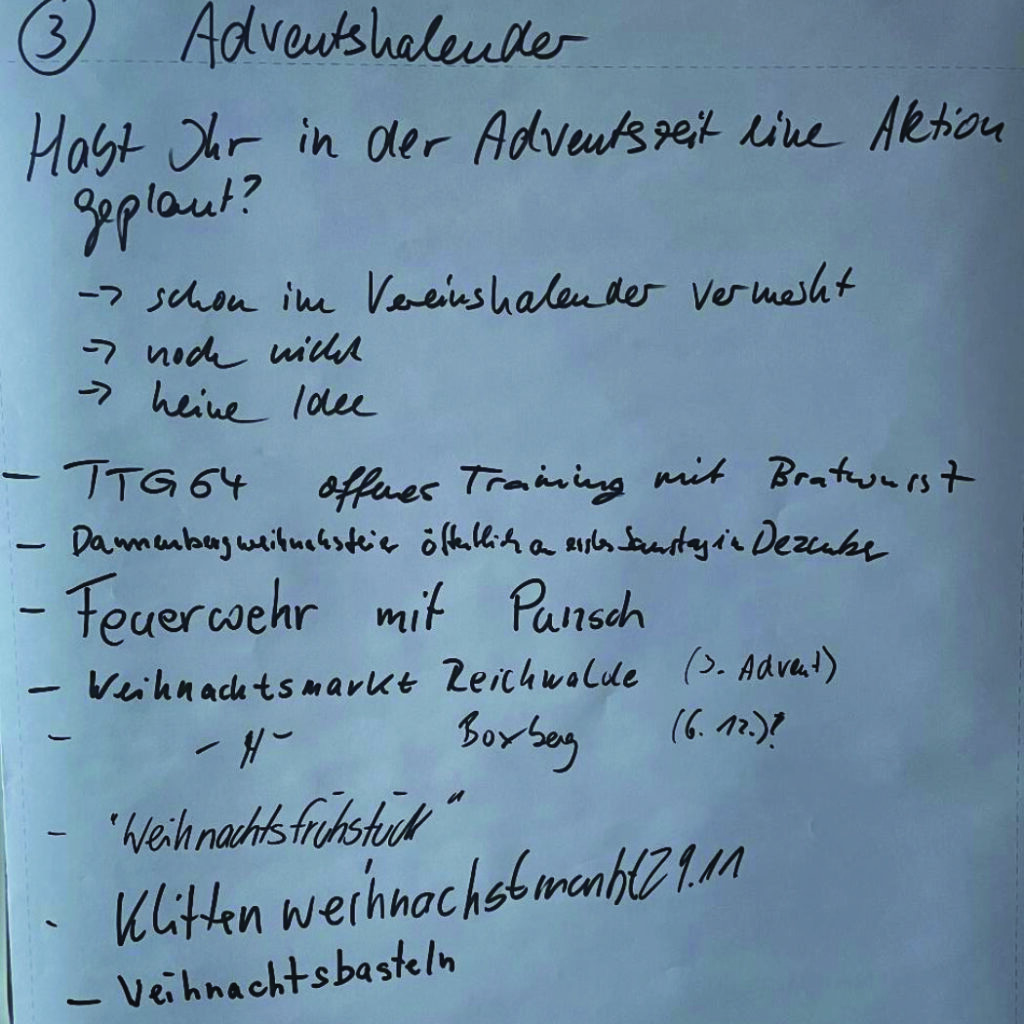 3 Adventskalender
Habt Ihr in der Adventszeit eine Aktion
geplant?
-> schon im Vereinskalender vermerkt
-> noch nicht
-> keine Idee
- TTG64 offenes Training mit Bratwurst
- Dannenbergweihnachsfeier öffentlich am ersten Samstag in Dezember
- Feuerwehr mit Punsch
- Weihnachtsmarkt Reichwalde (3. Advent)
- -"- Boxberg (6. 12.)?
- "Weihnachtsfrühstück"
- Klitten weihnachstmarkt 29.11
- Weihnachtsbasteln